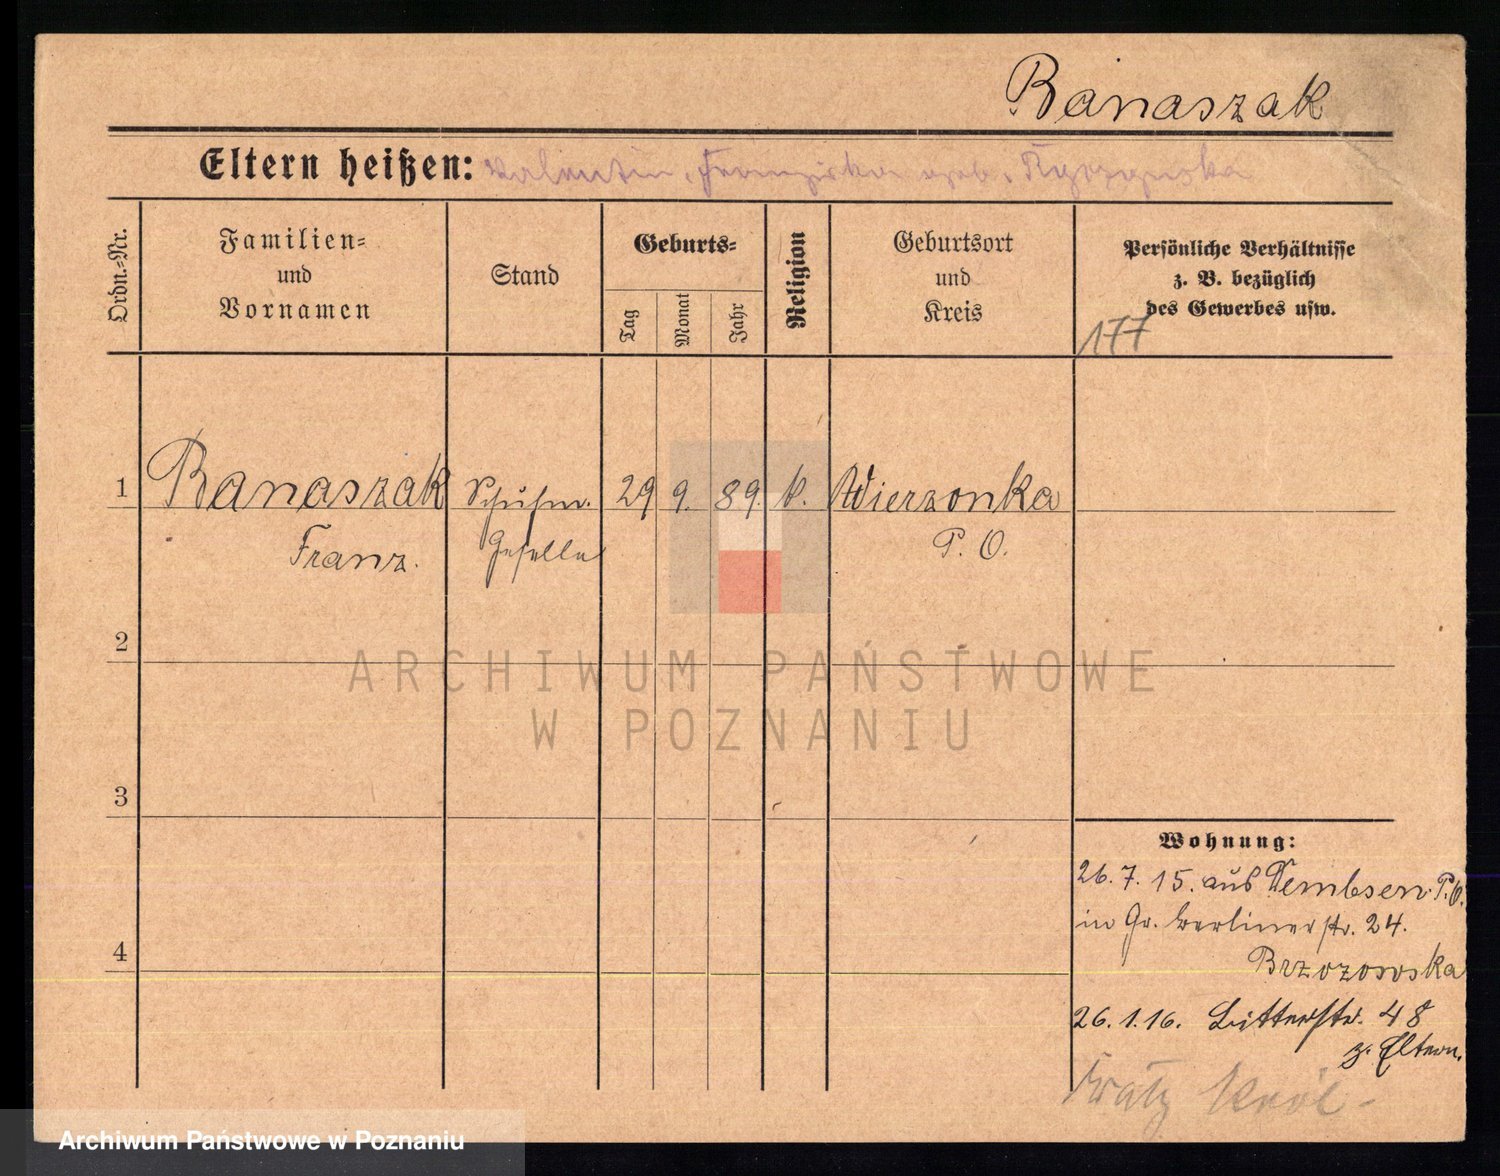 Banaszak
Eltern heißen: Valentin, Franziska geb.
Ordn.-Nr.
Familien-
und
Vornamen
Stand
Geburts-
Tag
Monat
Jahr
Religion
Geburtsort
und
Kreis
Persönliche Verhältnisse
z. B. bezüglich
des Gewerbes usw.
177
1 Banaszak Schuhm. 29 9. 89. k. Wierzonka
Franz. Geselle P. O.
2
3
4
Wohnung:
26. 7. 15. aus Dembsen P. O.
in Gr. Berlinerstr. 24.
Brzozowska
26. 1. 16. Bitterstr. 48
z. Eltern.
ARCHIWUM PAŃSTWOWE
W POZNANIU
Archiwum Państwowe w Poznaniu